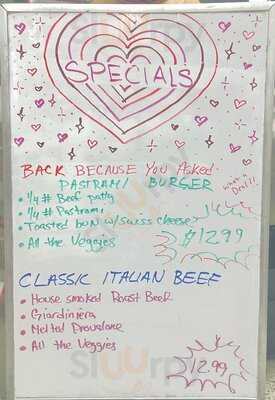 SPECIALS
BACK BECAUSE YOU Asked
PASTRAMI BURGER
• 1/4 # Beef patty
• 1/4 # Pastrami
• Toasted bun w/swiss cheese
• All the Veggies
$12.99
CLASSIC ITALIAN BEEF
• House smoked Roast Beef
• Giardiniera
• Melted Provalone
• All the Veggies
$12.99